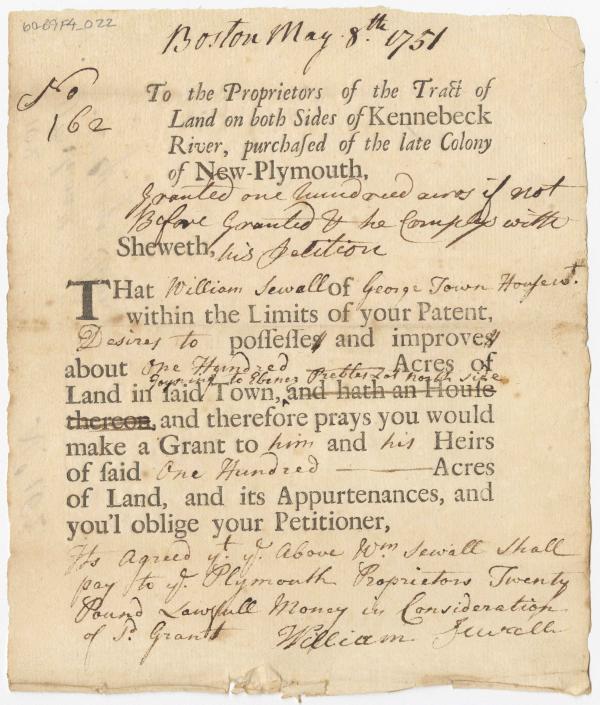 60-09F4_022
Boston May 8.th 1751
No
162
To the Proprietors of the Tract of
Land on both Sides of Kennebeck
River, purchaſed of the late Colony
of New-Plymouth,
Granted one hundred acres if not
Before Granted & he Complys with
Sheweth, his Petition
THat William Sewall of George Town Housewt.
within the Limits of your Patent,
Desires to poſſeſſes and improves
about One Hundred Acres of
Joyning to Ebenr Prebles Lot North Side
Land in ſaid Town, and hath an Houſe
thereon, and therefore prays you would
make a Grant to him and his Heirs
of ſaid One Hundred Acres
of Land, and its Appurtenances, and
you'l oblige your Petitioner,
Its Agreed yt. ye. Above Wm Sewall Shall
pay to ye. Plymouth Proprietors Twenty
Pound Lawfull Money in Consideration
of Sd. Grant William Sewall